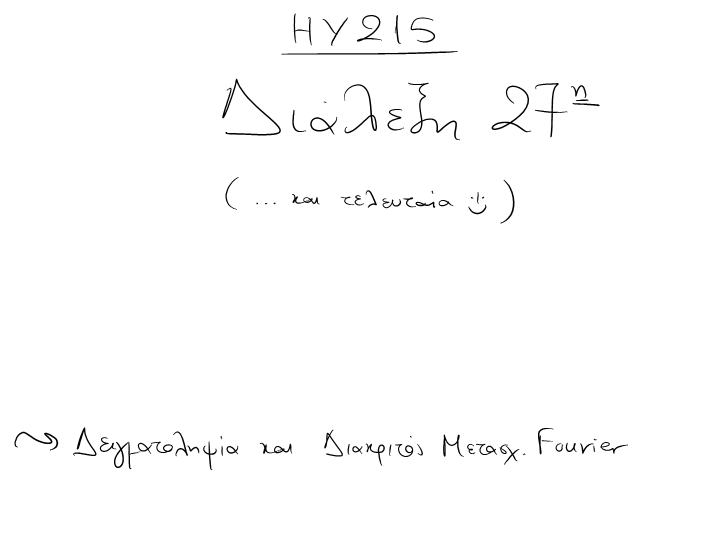 HY215
Διάλεξη 27η
(... και τελευταία :))
Δειγματοληψία και Διακριτός Μετασχ. Fourier